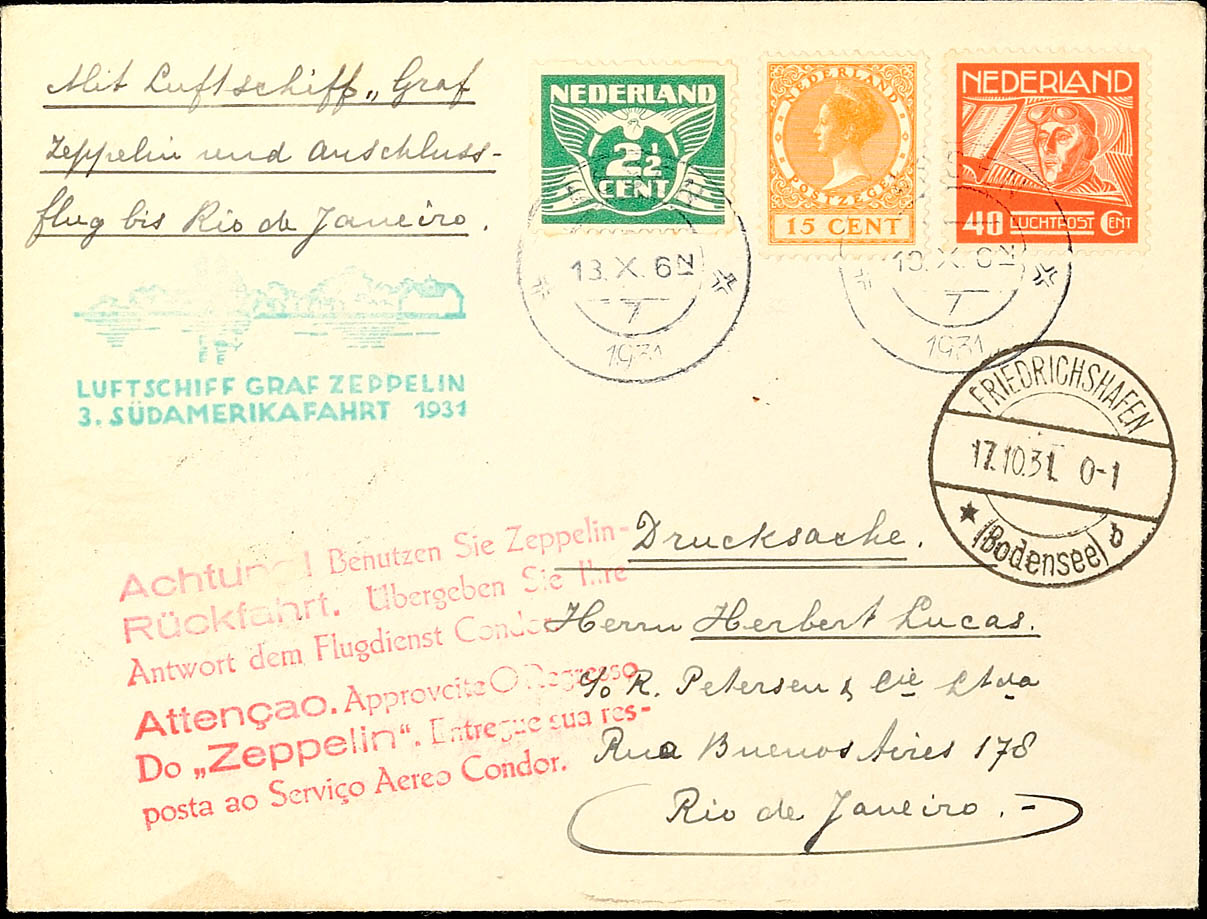 Mit Luftschiff „Graf
Zeppelin und Anschluss-
flug bis Rio de Janeiro.
NEDERLAND
2½
CENT
NEDERLAND
POSTZEGEL
15 CENT
NEDERLAND
40 LUCHTPOST CENT
13.X.6N
7
1931
13.X.6N
7
1931
LUFTSCHIFF GRAF ZEPPELIN
3. SÜDAMERIKAFAHRT 1931
FRIEDRICHSHAFEN
17.10.31. 0-1
(Bodensee) b
Achtung! Benutzen Sie Zeppelin-
Rückfahrt. Übergeben Sie Ihre
Antwort dem Flugdienst Condor
Attençao. Approveite O Regresso
Do „Zeppelin“. Entregue sua res-
posta ao Serviço Aereo Condor.
Drucksache.
Herrn Herbert Lucas.
c/o R. Petersen & Cie Ltda
Rua Buenos Aires 178
Rio de Janeiro.-